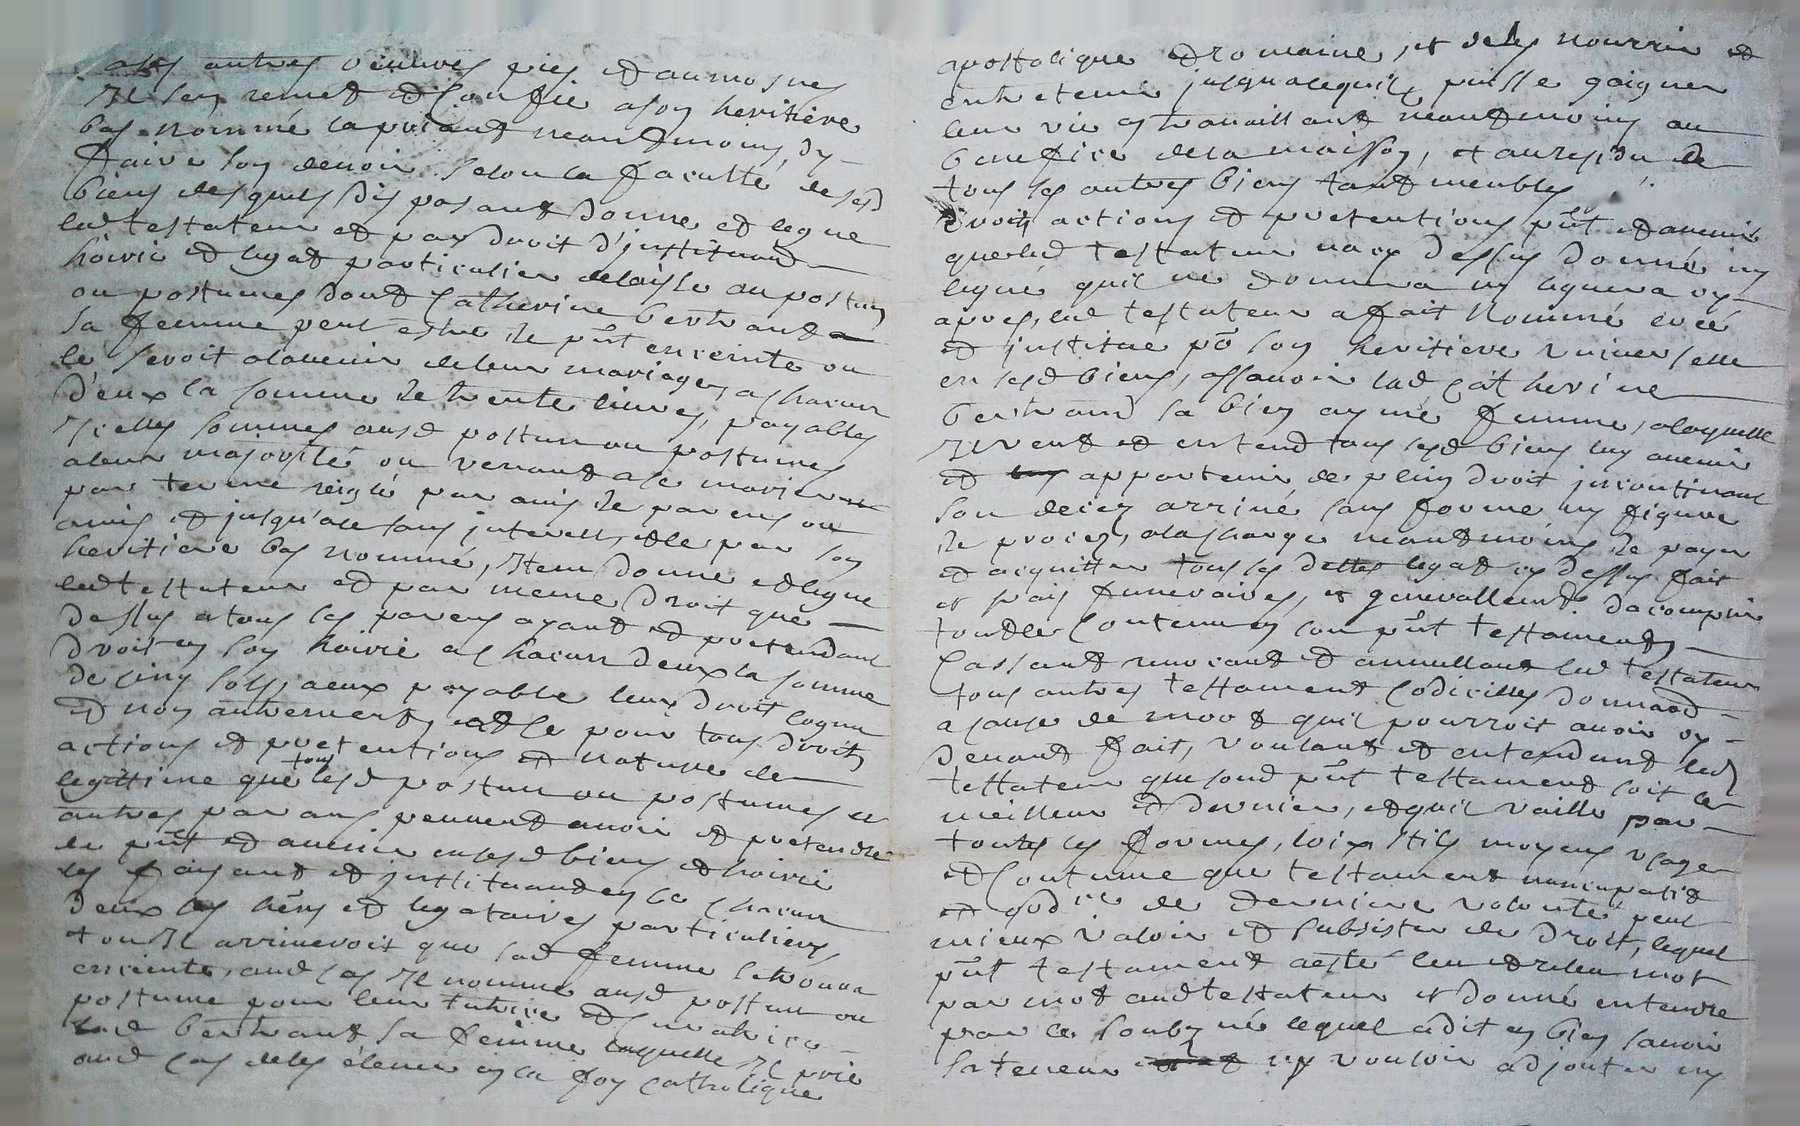 aux autres œuvres pies et aumosnes
Il sen remet et confie a son heritiere
bas nommé la priant neantmoins dy
faire son devoir selon la faculté de sesd
biens desquels disposant donne et legue
led testateur et par droit d'justitution
hoirie et legat particulier delaisse au postum
ou postumes dont Catherine bertrand
sa femme peut estre de pnt enceinte ou
le seroit aladvenir de leur mariage, a chacun
d'eux la somme de trente livres, payables
Icelles sommes ausd postum ou postumes
a leur majorité ou venant a se marier
par terme reiglé par amis de parens ou
amis et jusqu'alé sans interest, et le par son
heritiere bas nommé, Item donne et legue
led testateur et par meme droit que
dessus a tous les parens ayant et pretendant
droit en son hoirie a chacun deux la somme
de cinq sols, a eux payable leur droit cognu
et non autrement, et ce pour tous droits
actions et pretentions et nature de
legittime que tous lesd postum ou postumes et
autres parans peuvent avoir et pretendre
de pnt et avenir en sesd biens et hoirie
les faisant et justituant en ce chacun
deux ses hers et legataires particuliers
et ou Il arriveroit que sad femme se trouva
enceinte, aud cas Il nomme ausd postum ou
postume pour leur tutrice et curatrice
lad bertrand sa femme laquelle Il prie
aud cas de les élever en la foy catholique
apostolique et romaine, et de les nourrir et
entretenir jusqualequils puisse gaigner
leur vie en travaillant neantmoins au
benefice de la maison, et au resdu de
tous ses autres biens tant meubles
droits actions et pretentions pnt et avenir
que led testateur na cy dessus donné ny
legué quil ne donnera ny leguera cy
apres, led testateur a fait Nommé creé
et justitue po son heritiere universelle
en sesd biens, assavoir lad Catherine
bertrand sa bien aymé femme, a laquelle
Il veut et entend tous sesd biens luy avenir
et appartenir de plein droit incontinant
son decez arrivé, sans forme ny figure
de procez, a la charge neantmoins de payer
et acquitter tous les dettes legat cy dessus fait
et frais funeraires, et generallement dacomplir
tout le contenu en son pnt testament
Cassant revocant et annullant led testateur
tous autres testament codicilles donnaod
a cause de mort quil pourroit avoir cy
devant fait, voulant et entendant led
testateur que sond pnt testament soit le
meilleur et dernier, et quil vaille par
toutes les formes, loix stils moyens usage
et coutume que testament nuncupatif
et codice de derniere volonté peut
mieux valoir et subsister de droit, lequel
pnt testament a esté leu et releu mot
par mot aud testateur et donné entendre
par ce soubzné lequel a dit en bien savoir
la teneur ny vouloir adjouter ny